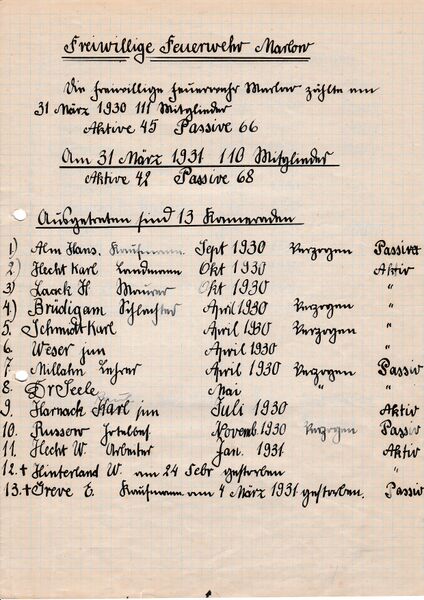 Freiwillige Feuerwehr Marlow
Die freiwillige Feuerwehr Marlow zählte am
31 März 1930 111 Mitglieder
Aktive 45 Passive 66
Am 31 März 1931 110 Mitglieder
Aktive 42 Passive 68
Ausgetreten sind 13 Kameraden
1) Alm Hans. Kaufmann Sept 1930 Verzogen Passiv
2) Hecht Karl Landmann Okt 1930 Aktiv
3) Laack H Maurer Okt 1930 "
4) Brüdigam Schlachter April 1930 Verzogen "
5. Schmidt Karl April 1930 Verzogen "
6. Weser jun April 1930 "
7. Millahn Lehrer April 1930 Verzogen Passiv
8 Dr Seele Mai " " "
9. Harnack Karl jun Juli 1930 Aktiv
10. Russow Novemb. 1930 Verzogen Passiv
11. Hecht W. Arbeiter Jan. 1931 Aktiv
12. + Hinterland W. am 24 Febr gestorben "
13. + Greve E. Kaufmann am 4 März 1931 gestorben. Passiv